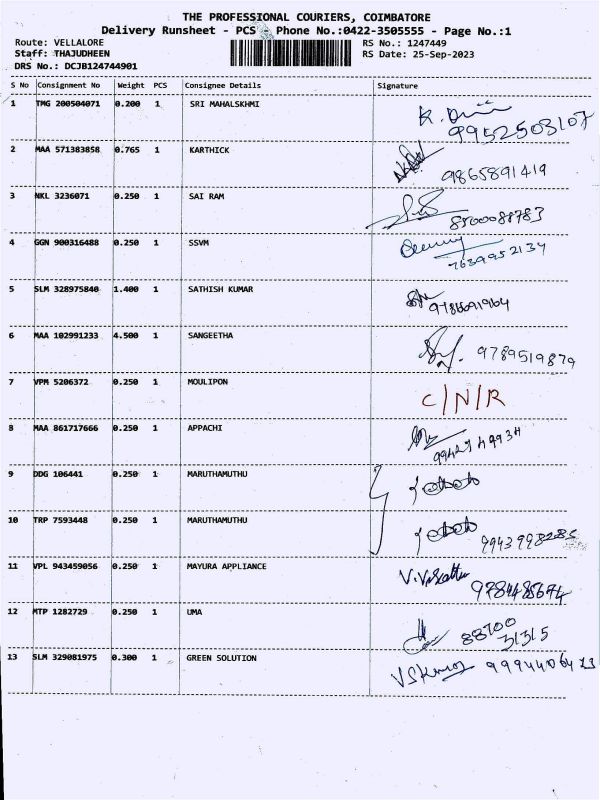 THE PROFESSIONAL COURIERS, COIMBATORE
Delivery Runsheet - PCS - Phone No.:0422-3505555 - Page No.:1
Route: VELLALORE RS No.: 1247449
Staff: THAJUDHEEN RS Date: 25-Sep-2023
DRS No.: DCJB124744901
S No Consignment No Weight PCS Consignee Details Signature
1 TMG 200504071 0.200 1 SRI MAHALSKHMI
9952503107
2 MAA 571383858 0.765 1 KARTHICK
9865891419
3 NKL 3236071 0.250 1 SAI RAM
8500088783
4 GGN 900316488 0.250 1 SSVM
7639952134
5 SLM 328975840 1.400 1 SATHISH KUMAR
6 MAA 102991233 4.500 1 SANGEETHA
9789519879
7 VPM 5206372 0.250 1 MOULIPON
C/N/R
8 MAA 861717666 0.250 1 APPACHI
9 DDG 106441 0.250 1 MARUTHAMUTHU
10 TRP 7593448 0.250 1 MARUTHAMUTHU
11 VPL 943459056 0.250 1 MAYURA APPLIANCE
12 MTP 1282729 0.250 1 UMA
88700
31315
13 SLM 329081975 0.300 1 GREEN SOLUTION